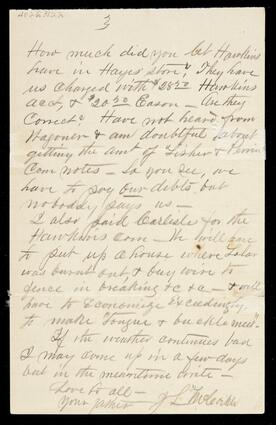 3
How much did you let Hawkins
have in Hayes' store? They have
us charged with $28.50 Hawkins
acct, & $20.50 Eason - Are they
Correct? Have not heard from
Wagoner & am doubtful about
getting the amt of Fisher &
Corn notes - So you see, we
have to pay our debts but
nobody pays us -
I also paid Carlisle for the
Hawkins Corn - We will
to put up a house where
was burnt out & buy wire to
fence in breaking &c &c - & will
have to Economize Exceedingly
to make "tongue & buckle meet" -
If the weather continues bad
I may come up in a few days
but in the meantime write -
Love to all -
Your father